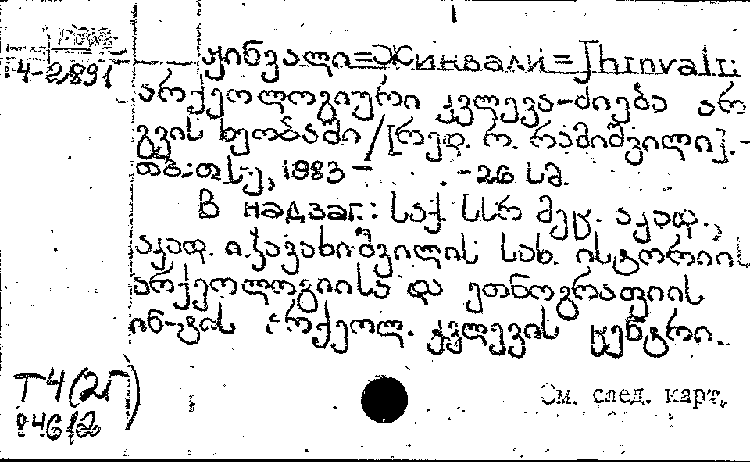 Г4-2891
ჟინვალი=Жинвали=Jhinvali:
არქეოლოგიური კვლევა-ძიება არ
გვის ხეობაში/[რედ. რ. რამიშვილი].-
თბ.:თსუ, 1983- -26 სმ.
В надзаг.: საქ. სსრ მეც. აკად.,
აკად. ი.ჯავახიშვილის სახ. ისტორიის
არქეოლოგიისა და ეთნოგრაფიის
ინ-ტის არქეოლ. კვლევის ცენტრი.
Т4(2Г)
См. след. карт.